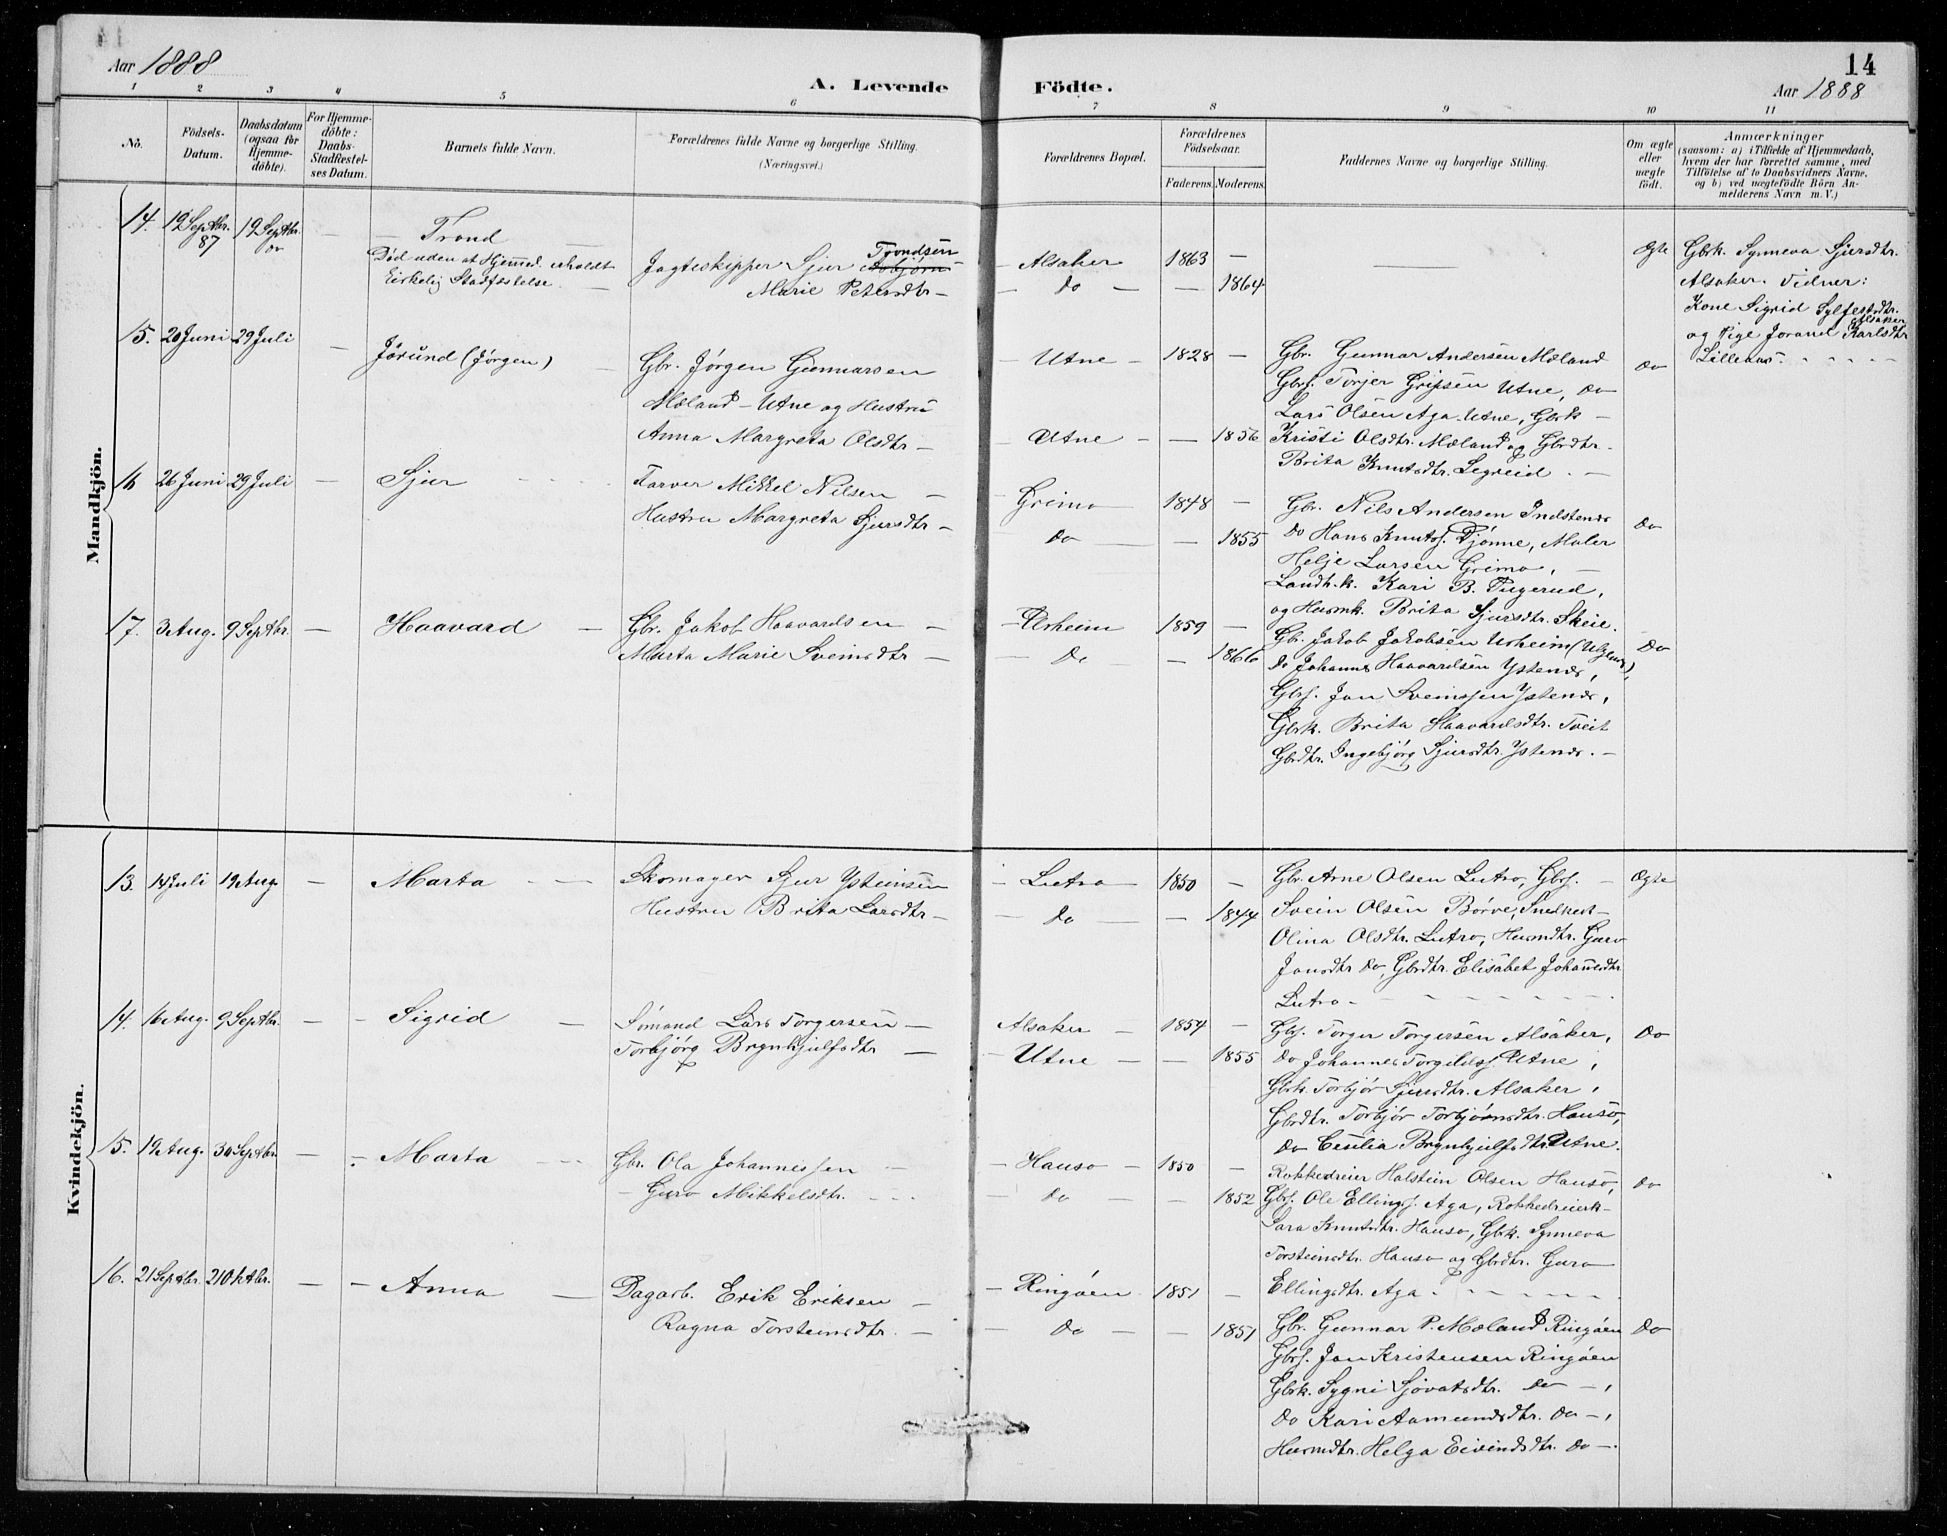 14
Aar 1888
A. Levende Födte.
Aar 1888
1 2 3 4 5 6 7 8 9 10 11
No.
Födsels-Datum.
Daabsdatum (ogsaa for Hjemme-döbte).
For Hjemme-döbte: Daabs-Stadfæstel-ses Datum.
Barnets fulde Navn.
Forældrenes fulde Navne og borgerlige Stilling. (Næringsvei.)
Forældrenes Bopæl.
Forældrenes Födselsaar.
Faderens. Moderens.
Faddernes Navne og borgerlige Stilling.
Om ægte eller uægte födt.
Anmærkninger
(saasom: a) i Tilfælde af Hjemmedaab,
hvem der har forrettet samme, med
Tilföielse af to Daabsvidners Navne,
og b) ved uægtefödte Börn An-
melderens Navn m. V.)
Mandkjön.
14. 19 Septbr. 87 19 Septbr. do — Trond
Död uden at Hjemmed. erholdt
Kirkelig Stadfæstelse. —
Jagteskipper Sjur Trondsen
Marie Petersdtr —
Alsaker 1863 —
Do — 1864
Ægte
Gbrk. Synneva Sjursdtr.
Alsaker. Vidner:
Kone Sigrid Sylfestsdtr. Alsaker
og Pige Jorand Karlsdtr
Lillenæs. - - - -
15. 20 Juni 29 Juli — Jörund (Jørgen) —
Gbr. Jørgen Gunnarsen
Mæland - Utne og Hustru
Anna Margreta Olsdtr —
Utne — 1828 —
Utne — — 1856
Gbr. Gunnar Andersen Mæland
Gbrs. Torjer Gripsen Utne, do
Lars Olsen Aga Utne, Gbrk —
Kristi Olsdtr. Mæland og Gbrdtr.
Brita Knutsdtr. Segreid. —
Do
16 26 Juni 29 Juli — Sjur - - - -
Farver Mikkel Nilsen —
Hustru Margreta Sjursdtr —
Grimo 1848 —
Do — — 1855
Gbr. Nils Andersen Indstenæs
do Hans Knuts. Djønne, Maler
Helje Larsen Grimo, —
Landh.k. Kari B. Tugerud,
og Husmk. Brita Sjursdtr. Skeie.
Do
17. 3 Aug. 9 Septbr. — Haavard —
Gbr. Jakob Haavardsen —
Marta Marie Sveinsdtr —
Urheim 1859 —
Do — — 1866
Gbr. Jakob Jakobsen Urheim
do Johannes Haavardsen Ystenæs,
Gbrs. Jon Sveinssen Ystenæs,
Gbrk. Brita Haavardsdtr. Tveit
Gbrdtr. Ingebjørg Sjursdtr. Ystenæs. —
Do
Kvindekjön.
13. 14 Juli 19 Aug. — Marta — —
Skomager Sjur Ysteinsen
Hustru Brita Larsdtr —
Lutro — 1850 —
Do — — 1844
Gbr. Arne Olsen Lutro, Gbrs. —
Svein Olsen Børve, Snedkerk —
Olina Olsdtr. Lutro, Husmdtr. Guro
Jonsdtr do, Gbrdtr. Elisabet Johannesdtr
Lutro - - - - -
Ægte
14. 16 Aug. 9 Septbr. — Sigrid —
Sömand Lars Torgersen —
Torbjörg Brynhjulfsdtr —
Alsaker — 1854 —
Utne — — 1855
Gbrs. Torger Torgersen Alsaker,
do Johannes Torgilds. Utne,
Gbrk. Torbjör Sjursdtr. Alsaker,
Gbrdtr. Torbjör Torbjörnsdtr. Hauso,
do Cecilia Brynhjulfsdtr. Utne.
Do
15. 19 Aug. 30 Septbr. — Marta - - -
Gbr. Ola Johannessen —
— Guro Mikkelsdtr. - - -
Hauso — 1850 —
Do — — 1852
Rokkedreier Halstein Olsen Hauso,
Gbrs. Ole Ellings. Aga, Rokkedreierk —
Sara Knutsdtr. Hauso, Gbrk. Synneva
Torsteinsdtr. Hauso og Gbrdtr. Guro
Ellingsdtr. Aga. - - - -
Do
16. 21 Septbr. 21 Oktbr. — Anna —
Dagarb. Erik Eriksen —
Ragna Torsteinsdtr. —
Ringöen 1851 —
Do — — 1851
Gbr. Gunnar P. Mæland Ringöen
Gbrs. Jon Kristensen Ringöen
Gbrk. Sygni Sjovatsdtr. do —,
do Kari Aamundsdtr. do —,
Husmdtr. Helga Eivindsdtr. do —.
Do